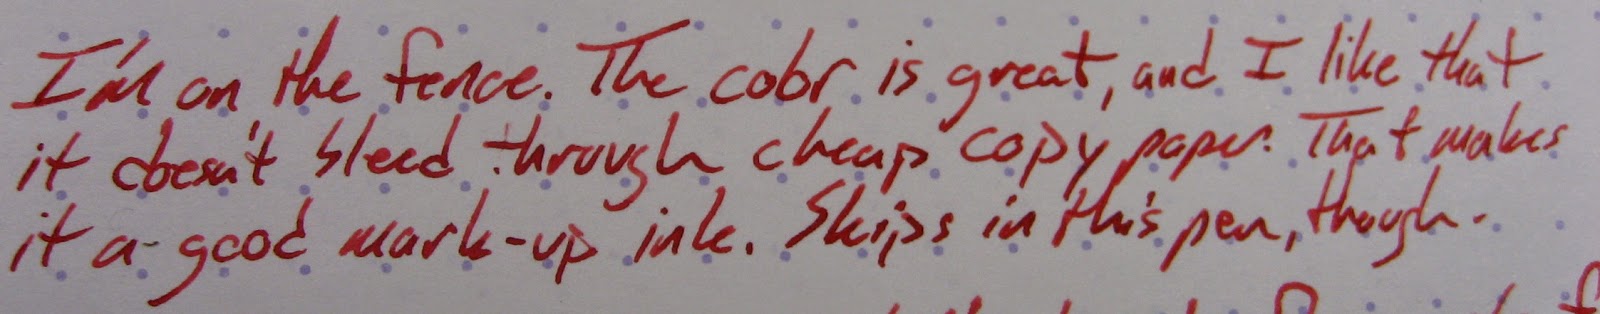 I'm on the fence. The color is great, and I like that
it doesn't bleed through cheap copy paper. That makes
it a good mark-up ink. Skips in this pen, though.